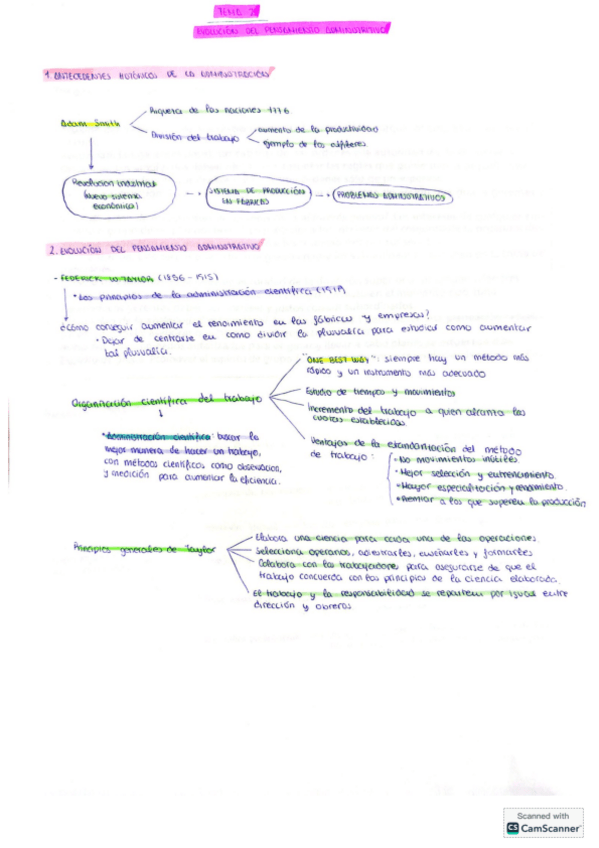 TEMA 2
EVOLUCIÓN DEL PENSAMIENTO ADMINISTRATIVO
1. ANTECEDENTES HISTÓRICOS DE LA ADMINISTRACIÓN
Riqueza de las naciones 1776
Adam Smith
División del trabajo
aumento de la productividad
ejemplo de los alfileres
Revolucion industrial
(nuevo sistema
económico)
SISTEMA DE PRODUCCIÓN
EN FÁBRICAS
PROBLEMAS ADMINISTRATIVOS
2. EVOLUCIÓN DEL PENSAMIENTO ADMINISTRATIVO
- FEDERICK W. TAYLOR (1856 - 1915)
• Los principios de la administración científica (1911)
¿Cómo conseguir aumentar el rendimiento en las fábricas y empresas?
• Dejar de centrarse en como dividir la plusvalía para estudiar como aumentar
tal plusvalía.
"ONE BEST WAY": siempre hay un método más
rápido y un instrumento más adecuado
Organización científica del trabajo
Estudio de tiempos y movimientos
Incremento del trabajo a quien alcanza las
cuotas establecidas
• Administración científica: buscar la
mejor manera de hacer un trabajo,
con métodos científicos como observación,
y medición para aumentar la eficiencia.
Ventajas de la estandarización del método
de trabajo:
• No movimientos inútiles
• Mejor selección y entrenamiento.
• Mayor especialización y rendimiento.
• Premiar a los que superen la producción
Principios generales de Taylor
Elabora una ciencia para cada una de las operaciones.
Selecciona operarios, adiestrarles, enseñarles y formarles
Colabora con los trabajadores para asegurarse de que el
trabajo concuerda con los principios de la ciencia elaborada.
El trabajo y la responsabilidad se reparten por igual entre
dirección y obreros
Scanned with
CS CamScanner